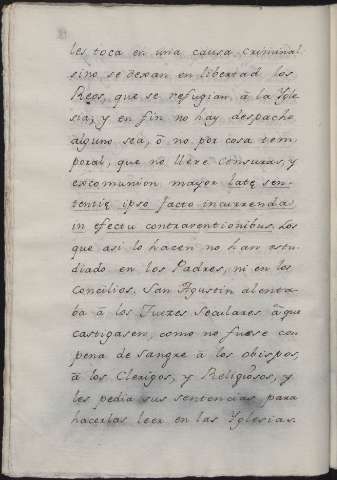 les toca en una causa criminal
sino se dexan en libertad los
Reos, que se refugian, â la Ygle
sia; y en fin no hay despacho
alguno sea, ô no por cosa tem
poral, que no lleve censuras, y
excomunion mayor latę sen-
tentię ipso facto incurrendas
in efectu contraventionibus. Los
que asi lo hacen no han estu
diado en los Padres, ni en los
Concilios. San Agustin alenta
ba â los Juezes Seculares âque
castigasen, como no fuese con
pena de sangre â los obispos,
â los Clerigos, y Religiosos, y
les pedia sus sentencias, para
hacerlas leer en las Yglesias.